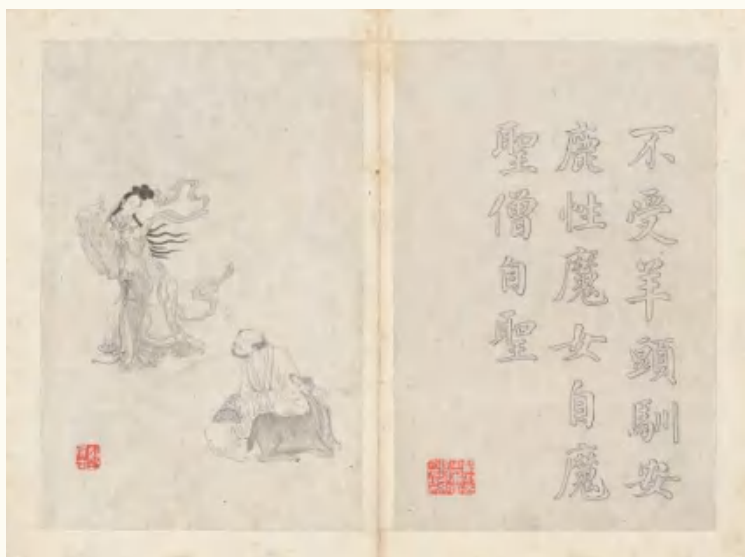 不受羊頭馴安
鹿性魔女自魔
聖僧自聖